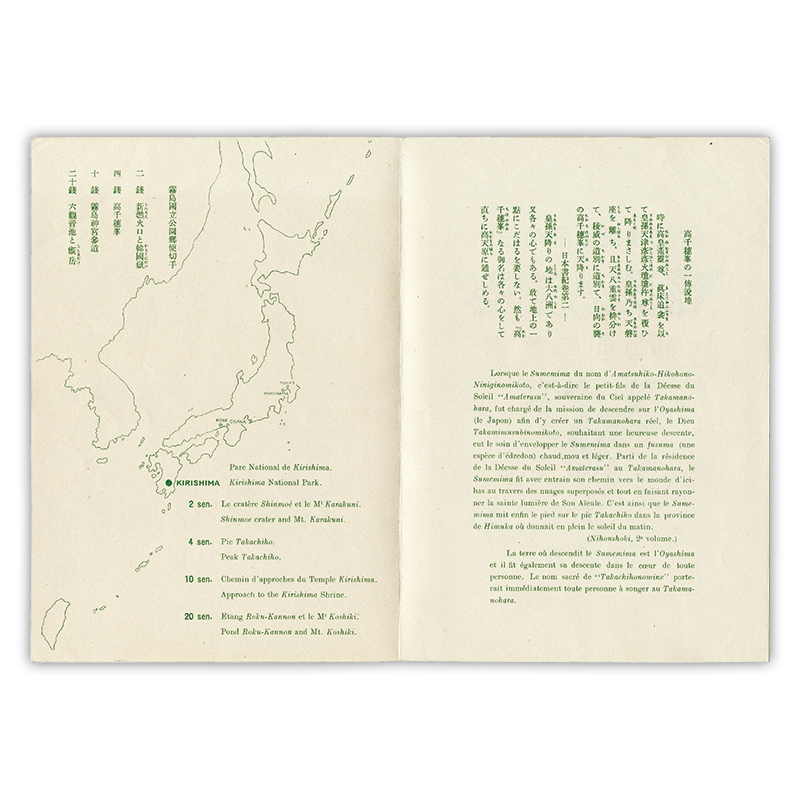 霧島國立公園郵便切手
二錢 新燃火口と韓國嶽
四錢 高千穗峯
十錢 霧島神宮參道
二十錢 六觀音池と甑岳
TOKYO
YOKOHAMA
KOBE OSAKA
KIRISHIMA
Parc National de Kirishima.
Kirishima National Park.
2 sen. Le cratère Shinmoé et le Mt Karakuni.
Shinmoe crater and Mt. Karakuni.
4 sen. Pic Takachiho.
Peak Takachiho.
10 sen. Chemin d'approches du Temple Kirishima.
Approach to the Kirishima Shrine.
20 sen. Etang Roku-Kannon et le Mt Koshiki.
Pond Roku-Kannon and Mt. Koshiki.
高千穗峯の一傳說地
時に高皇產靈尊、眞床追衾を以
て皇孫天津彥彥火瓊瓊杵尊を覆ひ
て、降りまさしむ。皇孫乃ち天磐
座を離ち、且天八重雲を排分け
て、稜威の道別に道別て、日向の襲
の高千穗峯に天降ります。
―日本書紀卷第二―
皇孫天降りの地は大八洲であり
又各々の心でもある。敢て地上の一
點にこだはるを要しない。然も『高
千穗峯』なる御名は各々の心をして
直ちに高天原に通ぜしめる。
Lorsque le Sumemima du nom d'Amatsuhiko-Hikohono-
Niniginomikoto, c'est-à-dire le petit-fils de la Déesse du
Soleil "Amaterasu", souveraine du Ciel appelé Takamano-
hara, fut chargé de la mission de descendre sur l'Oyashima
(le Japon) afin d'y créer un Takamanohara réel, le Dieu
Takamimusubinomikoto, souhaitant une heureuse descente,
eut le soin d'envelopper le Sumemima dans un fusuma (une
espèce d'édredon) chaud,mou et léger. Parti de la résidence
de la Déesse du Soleil "Amaterasu" au Takamanohara, le
Sumemima fit avec entrain son chemin vers le monde d'ici-
bas au travers des nuages superposés et tout en faisant rayon-
ner la sainte lumière de Son Aïeule. C'est ainsi que le Sume-
mima mit enfin le pied sur le pic Takachiho dans la province
de Himuka où donnait en plein le soleil du matin.
(Nihonshoki, 2e volume.)
La terre où descendit le Sumemima est l'Oyashima
et il fit également sa descente dans le cœur de toute
personne. Le nom sacré de "Takachihonomine" porte-
rait immédiatement toute personne à songer au Takama-
nohara.